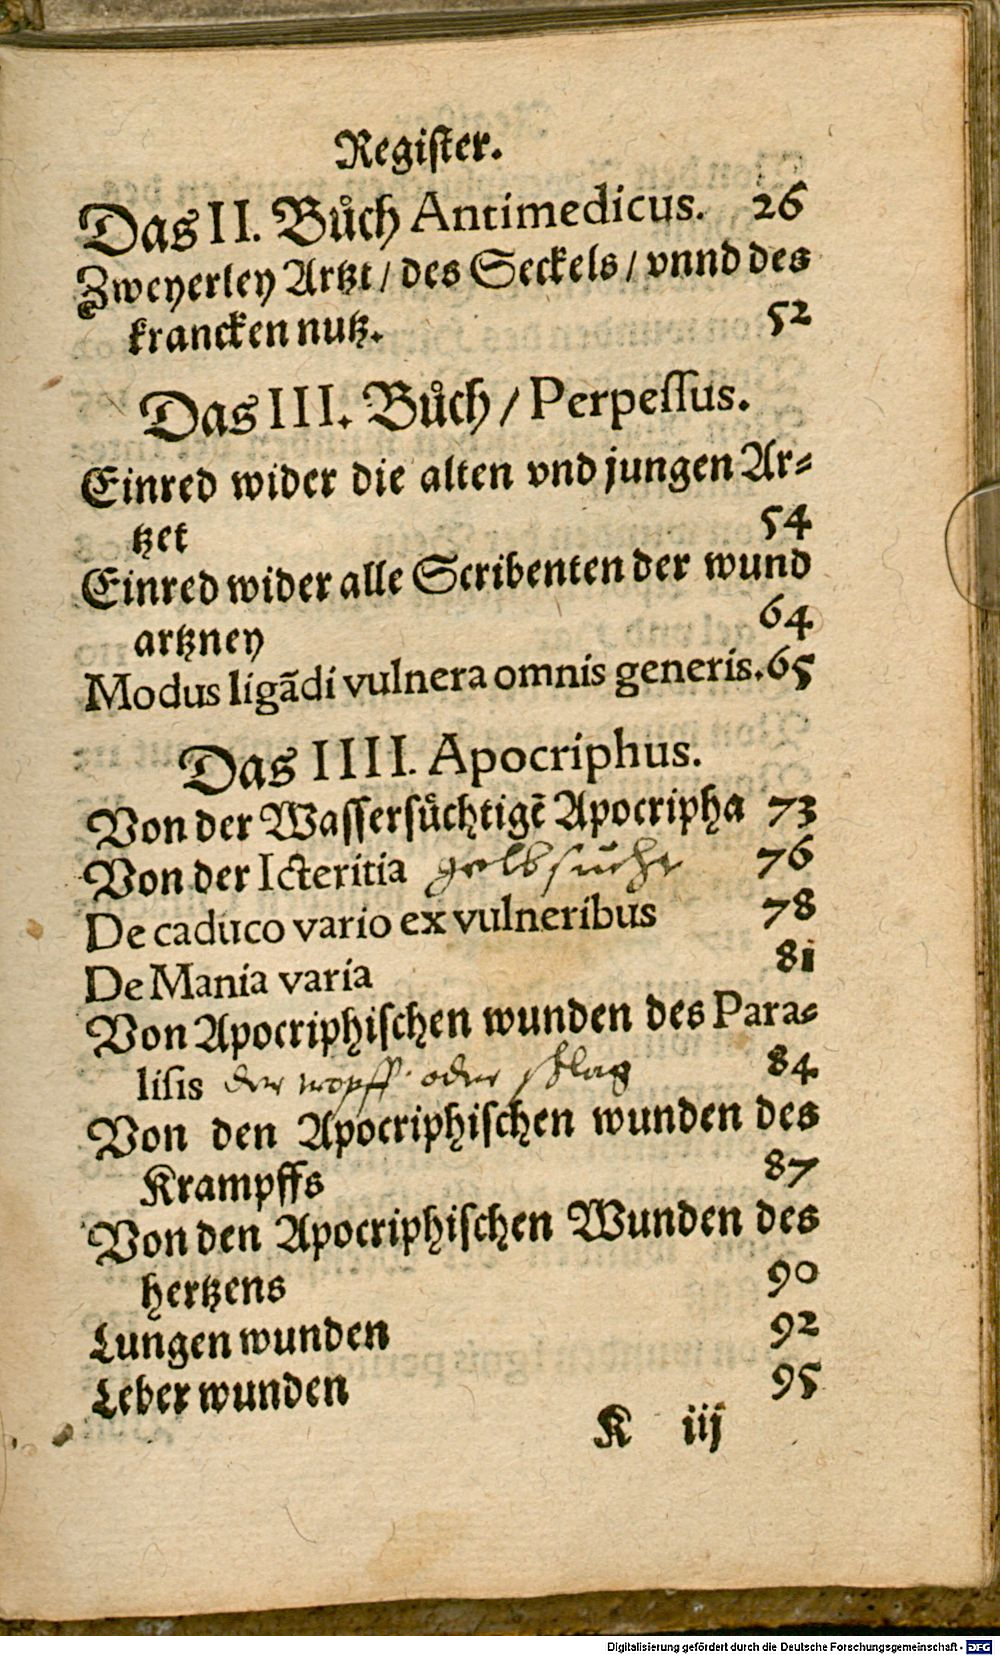 Regiſter.
Das II. Bůch Antimedicus. 26
Zweyerley Artzt / des Seckels / vnnd des
krancken nutz. 52
Das III. Bůch / Perpeſſus.
Einred wider die alten vnd jungen Ar⸗
tzet 54
Einred wider alle Scribenten der wund
artzney 64
Modus ligãdi vulnera omnis generis. 65
Das IIII. Apocriphus.
Von der Waſſerſuͤchtigẽ Apocripha 73
Von der Icteritia gelbſucht 76
De caduco vario ex vulneribus 78
De Mania varia 81
Von Apocriphiſchen wunden des Para⸗
liſis der tropff oder ſchlag 84
Von den Apocriphiſchen wunden des
Krampffs 87
Von den Apocriphiſchen Wunden des
hertzens 90
Lungen wunden 92
Leber wunden 95
K iij
Digitalisierung gefördert durch die Deutsche Forschungsgemeinschaft - DFG